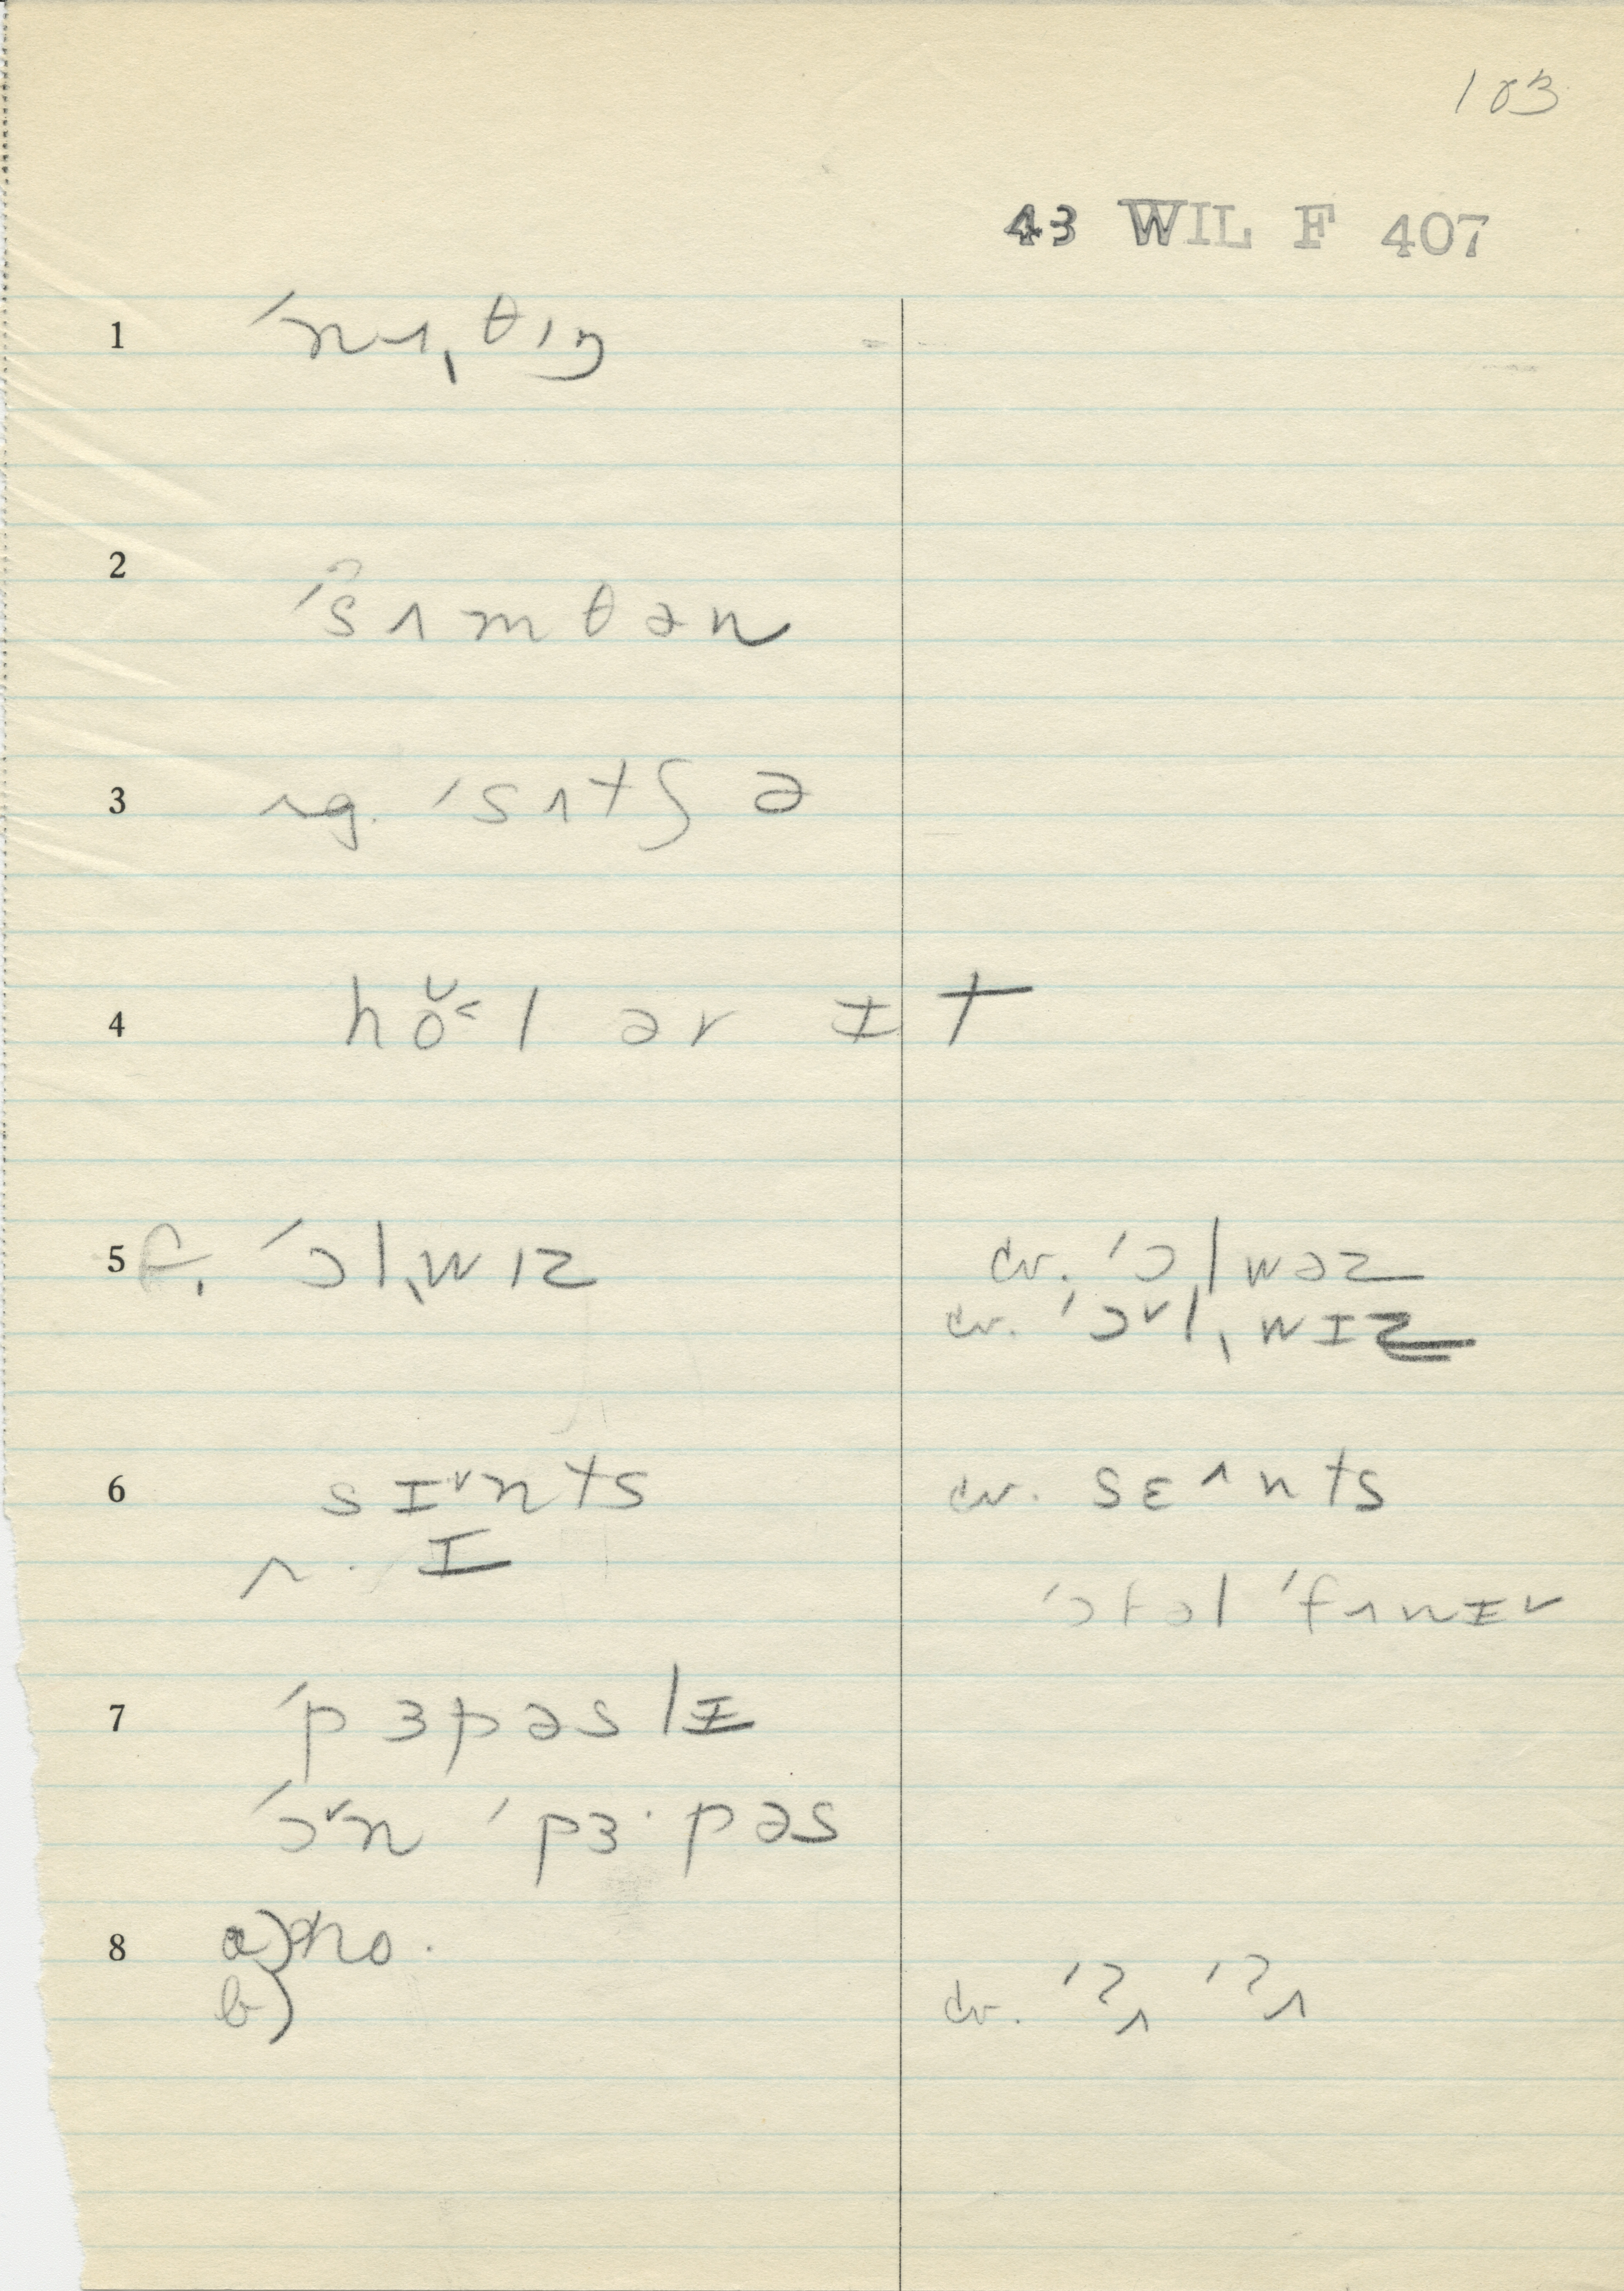 103
43 WIL F 407
1 ˈnʌˌθɪŋ
2 ˈsʌmθən
3 ˈsʌtʃ ə
4 ho˅˂l ər ɪt
5 f. ˈɔlˌwɪz cv. ˈɔlwəz
cv. ˈɔ˅lˌwɪz
6 sɪ˅nts cv. sɛ˄nts
r. ɪ
ˈɔtəl ˈfʌnɪ˅
7 ˈpɜpəslɪ
ˈɔ˅n ˈpɜ·pəs
8 a) no.
b) cv. ˈʔʌ ˈʔʌ